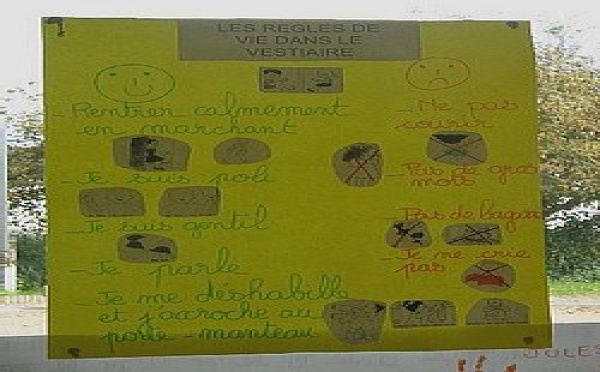 LES REGLES DE
VIE DANS LE
VESTIAIRE
- Rentrer calmement
en marchant
- Je suis poli
- Je suis gentil
- Je parle
- Je me déshabille
et j'accroche au
porte-manteau
- Ne pas
courir
- Pas de gros
mots
- Pas de bagarre
- Je ne crie
pas
JULES